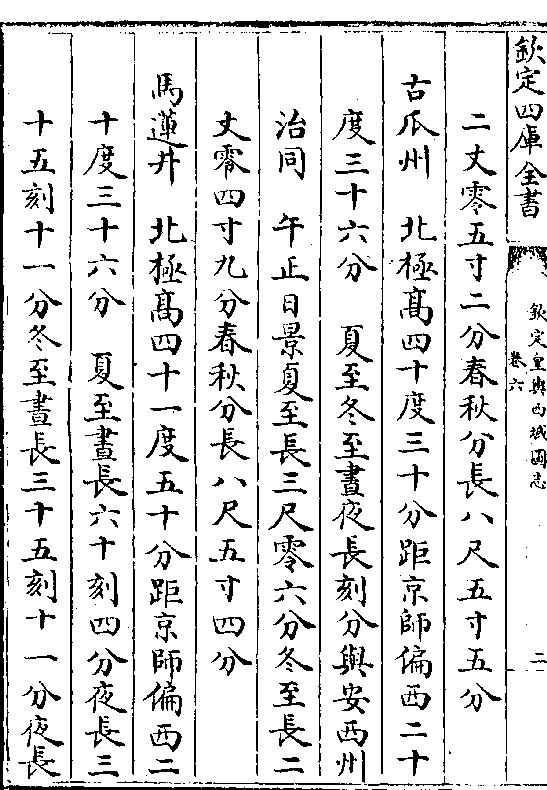 欽定四庫全書
欽定皇輿西域圖志
卷六
二
二丈零五寸二分春秋分長八尺五寸五分
古瓜州　北極髙四十度三十分距京師偏西二十
度三十六分　夏至冬至晝夜長刻分與安西州
治同　午正日景夏至長三尺零六分冬至長二
丈零四寸九分春秋分長八尺五寸四分
馬蓮井　北極髙四十一度五十分距京師偏西二
十度三十六分　夏至晝長六十刻四分夜長三
十五刻十一分冬至晝長三十五刻十一分夜長